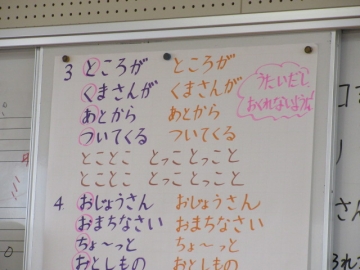 3 ところが ところが
くまさんが くまさんが
あとから あとから
ついてくる ついてくる
とことこ とっことっこと
とことこ とっことっこと
4. おじょうさん おじょうさん
おまちなさい おまちなさい
ちょ〜っと ちょ〜っと
おとしもの おとしもの
うたいだし
おくれないように